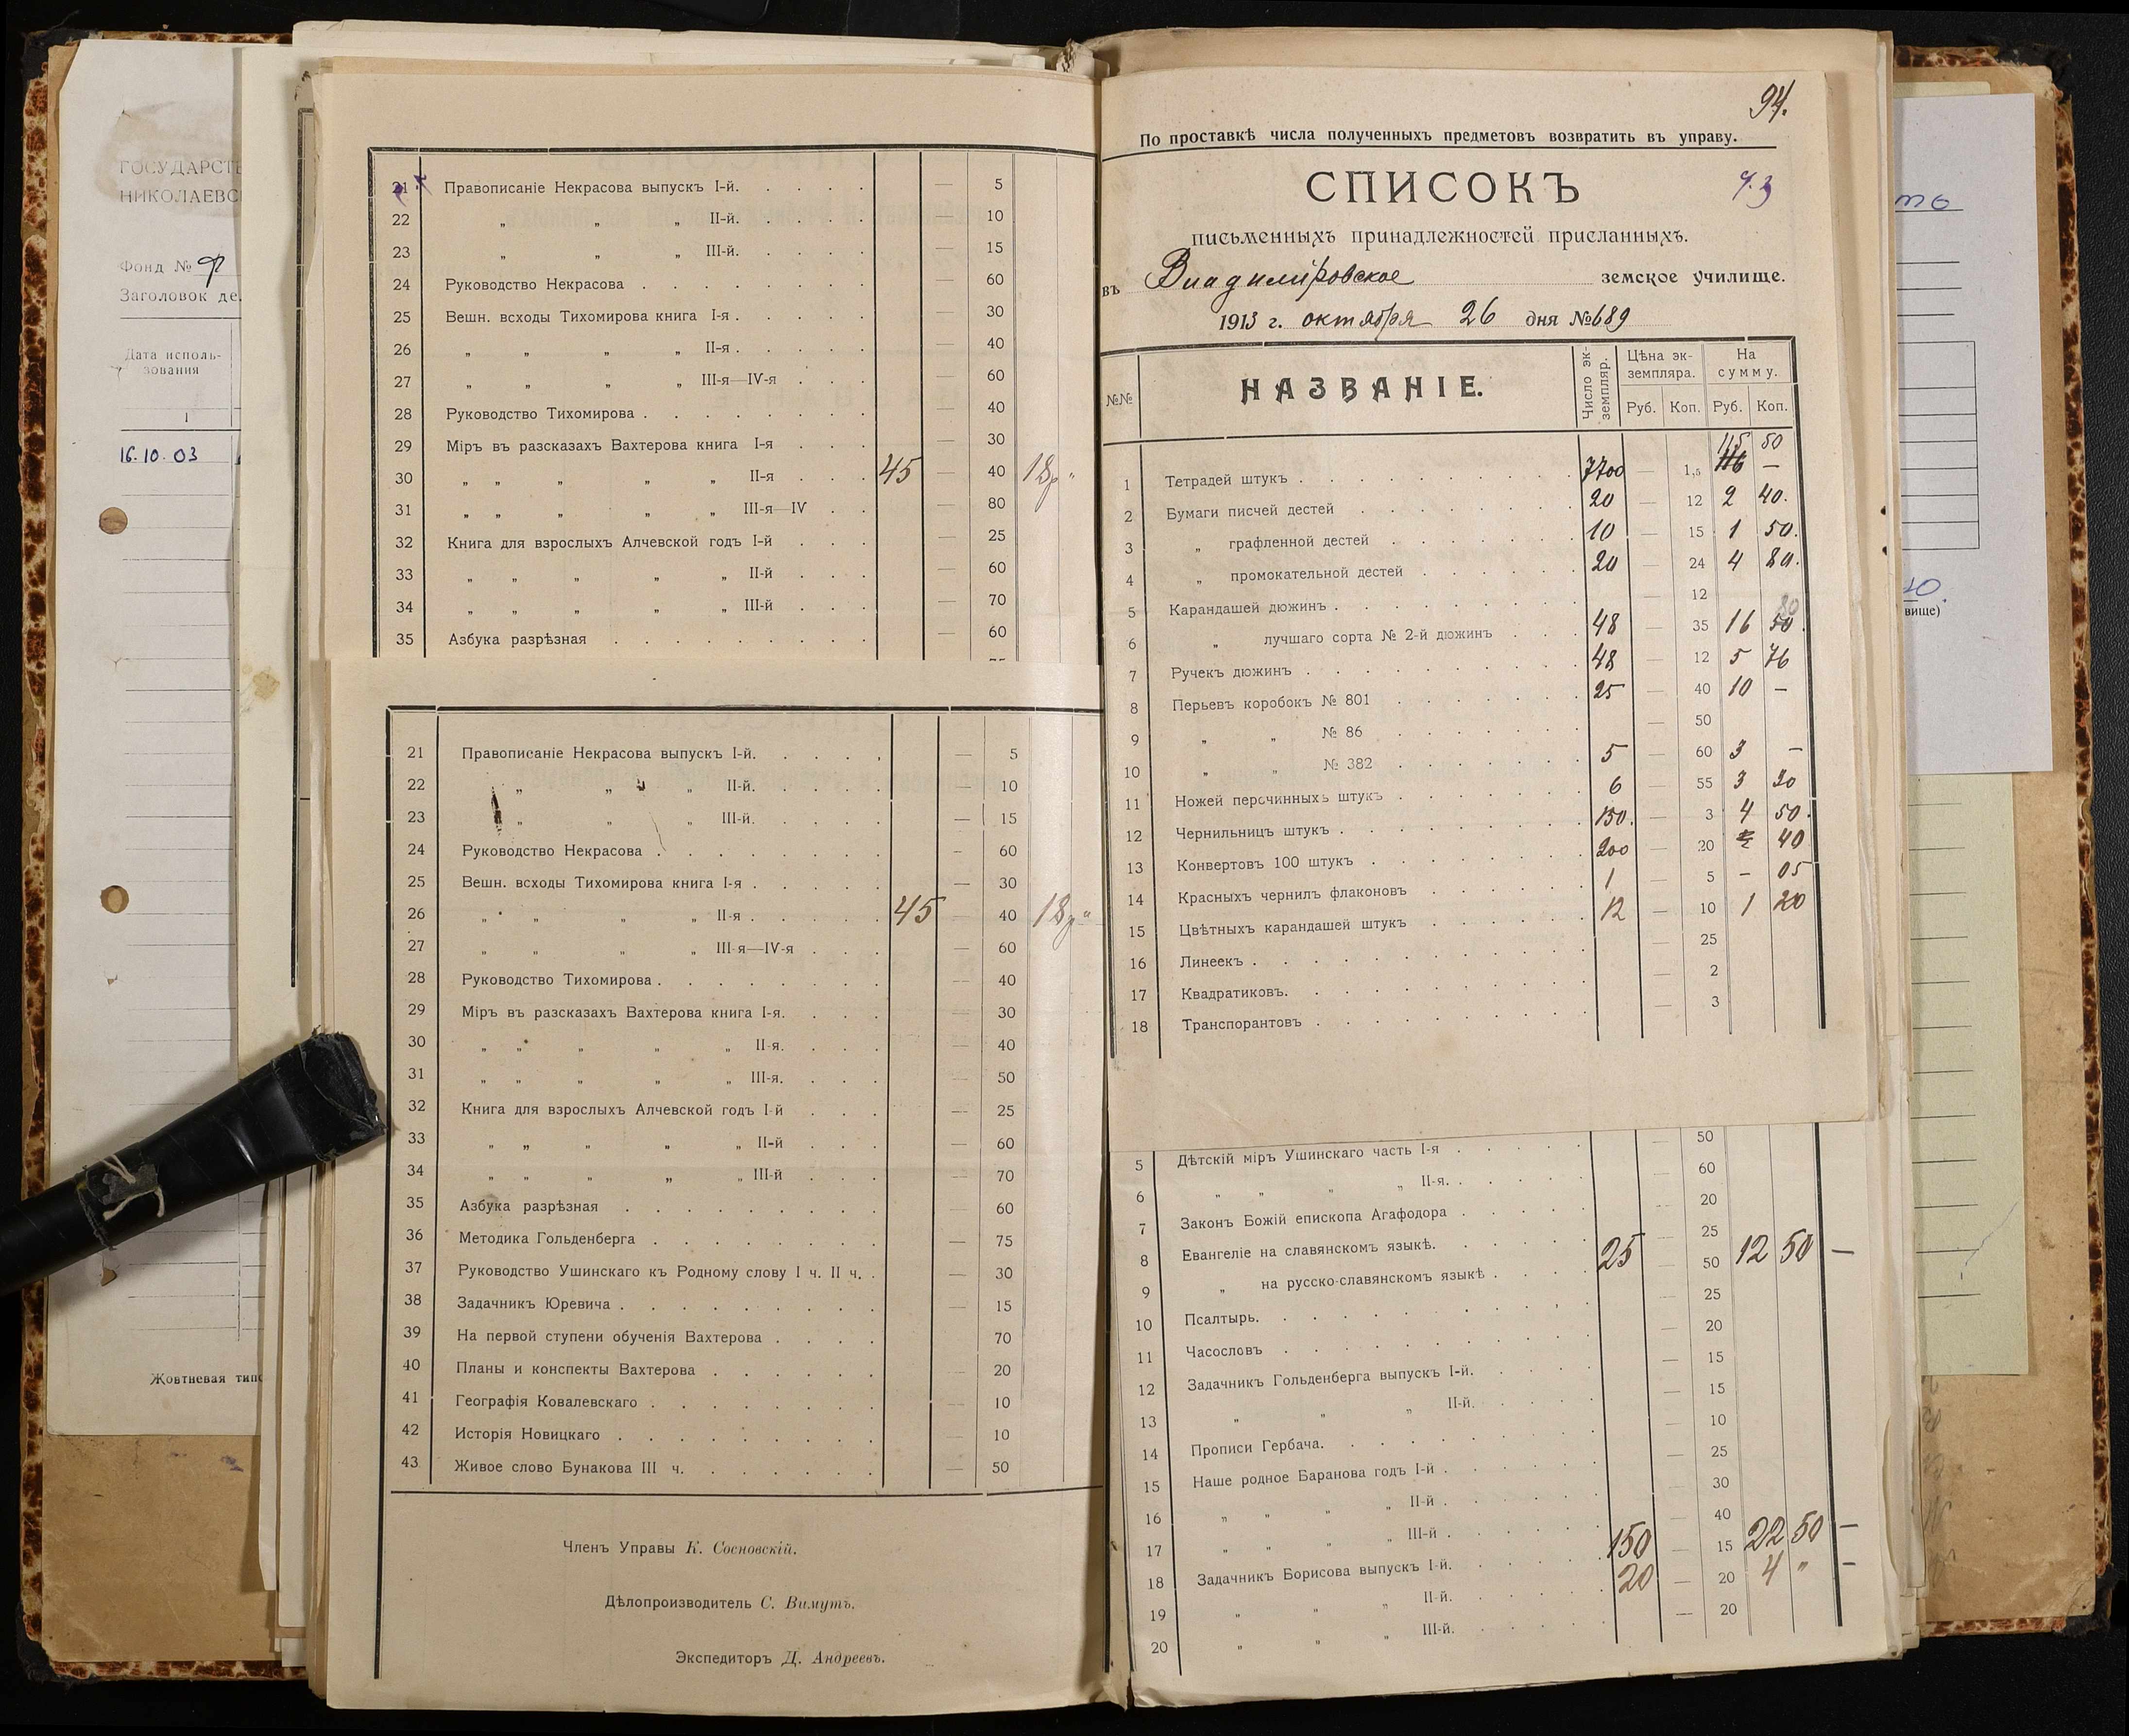 ГОСУДАРСТ
НИКОЛАЕВС
Фонд №
Заголовок де
Дата исполь-
зования
1
16.10.03
Жовтневая тип
21 Правописаніе Некрасова выпускъ I-й. — 5
22 „ „ „ II-й. — 10
23 „ „ „ III-й. — 15
24 Руководство Некрасова — 60
25 Вешн. всходы Тихомирова книга I-я — 30
26 „ „ „ „ II-я — 40
27 „ „ „ „ III-я—IV-я — 60
28 Руководство Тихомирова — 40
29 Міръ въ разсказахъ Вахтерова книга I-я — 30
30 „ „ „ „ „ II-я 45 — 40 18р „
31 „ „ „ „ „ III-я—IV — 80
32 Книга для взрослыхъ Алчевской годъ I-й — 25
33 „ „ „ „ „ II-й — 60
34 „ „ „ „ „ III-й — 70
35 Азбука разрѣзная — 60
21 Правописаніе Некрасова выпускъ I-й. — 5
22 „ „ „ II-й. — 10
23 „ „ „ III-й. — 15
24 Руководство Некрасова — 60
25 Вешн. всходы Тихомирова книга I-я — 30
26 „ „ „ „ II-я 45 — 40 18р „
27 „ „ „ „ III-я—IV-я — 60
28 Руководство Тихомирова — 40
29 Міръ въ разсказахъ Вахтерова книга I-я. — 30
30 „ „ „ „ „ II-я. — 40
31 „ „ „ „ „ III-я. — 50
32 Книга для взрослыхъ Алчевской годъ I-й — 25
33 „ „ „ „ „ II-й — 60
34 „ „ „ „ „ III-й — 70
35 Азбука разрѣзная — 60
36 Методика Гольденберга — 75
37 Руководство Ушинскаго къ Родному слову I ч. II ч. — 30
38 Задачникъ Юревича — 15
39 На первой ступени обученія Вахтерова — 70
40 Планы и конспекты Вахтерова — 20
41 Географія Ковалевскаго — 10
42 Исторія Новицкаго — 10
43 Живое слово Бунакова III ч. — 50
Членъ Управы К. Сосновскій.
Дѣлопроизводитель С. Вимутъ.
Экспедиторъ Д. Андреевъ.
94.
По проставкѣ числа полученныхъ предметовъ возвратить въ управу.
СПИСОКЪ
письменныхъ принадлежностей присланныхъ.
въ Владимировское земское училище.
1913 г. октября 26 дня № 689
№№ НАЗВАНІЕ. Число эк-земпляр. Цѣна эк-земпляра. На сумму.
Руб. Коп. Руб. Коп.
115 50
1 Тетрадей штукъ 7700 — 1,5 116 —
2 Бумаги писчей дестей 20 — 12 2 40.
3 „ графленной дестей 10 — 15 1 50.
4 „ промокательной дестей 20 — 24 4 80.
5 Карандашей дюжинъ — 12
6 „ лучшаго сорта № 2-й дюжинъ 48 — 35 16 80
7 Ручекъ дюжинъ 48 — 12 5 76
8 Перьевъ коробокъ № 801 25 — 40 10 —
9 „ „ № 86 — 50
10 „ „ № 382 5 — 60 3 —
11 Ножей перочинныхъ штукъ 6 — 55 3 30
12 Чернильницъ штукъ 150. — 3 4 50.
13 Конвертовъ 100 штукъ 200 — 20 40
14 Красныхъ чернилъ флаконовъ 1 — 5 — 05
15 Цвѣтныхъ карандашей штукъ 12 — 10 1 20
16 Линеекъ — 25
17 Квадратиковъ. — 2
18 Транспорантовъ — 3
5 Дѣтскій міръ Ушинскаго часть I-я — 50
6 „ „ „ „ II-я. — 60
7 Законъ Божій епископа Агафодора — 20
8 Евангеліе на славянскомъ языкѣ. — 25
9 „ на русско-славянскомъ языкѣ 25 — 50 12 50 —
10 Псалтырь. — 25
11 Часословъ — 20
12 Задачникъ Гольденберга выпускъ I-й. — 15
13 „ „ „ II-й. — 15
14 Прописи Гербача. — 10
15 Наше родное Баранова годъ I-й — 25
16 „ „ „ „ II-й — 30
17 „ „ „ „ III-й — 40
18 Задачникъ Борисова выпускъ I-й. 150 — 15 22 50 —
19 „ „ „ II-й. 20 — 20 4 „ —
20 „ „ „ III-й. — 20
вище)